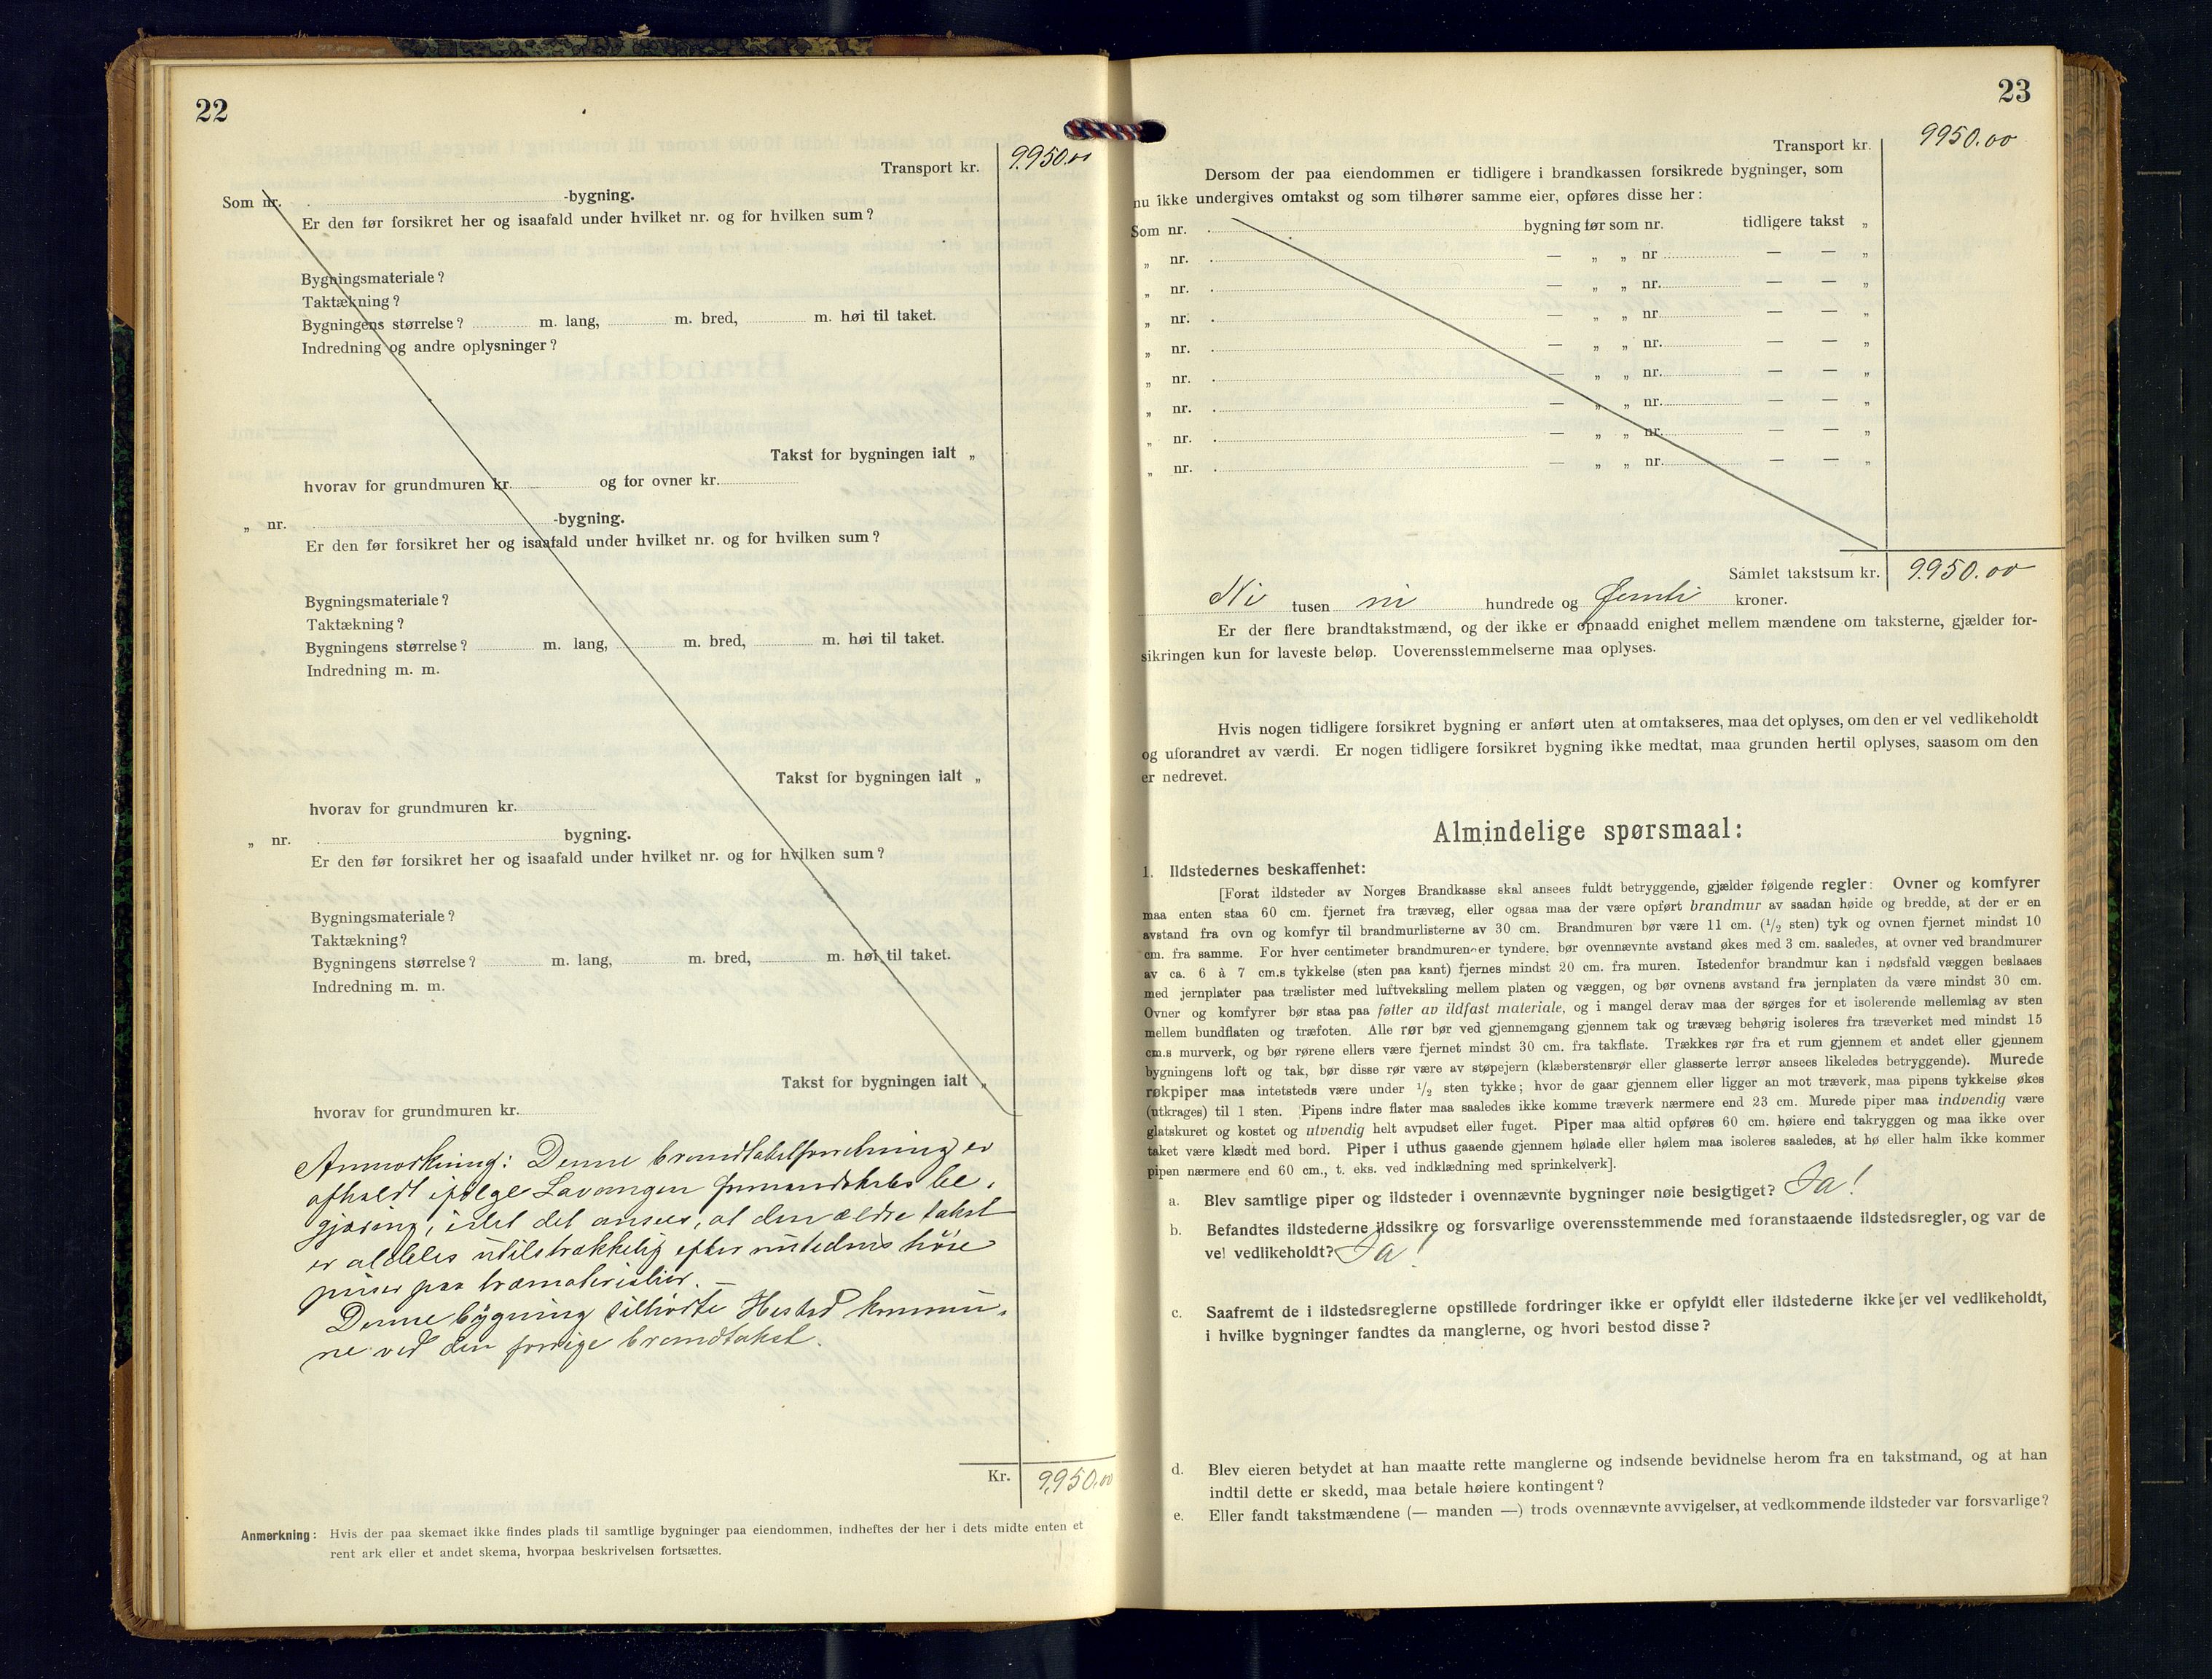 22
Transport kr. 9.950.00
Som nr. -bygning.
Er den før forsikret her og isaafald under hvilket nr. og for hvilken sum?
Bygningsmateriale?
Taktækning?
Bygningens størrelse? m. lang, m. bred, m. høi til taket.
Indredning og andre oplysninger?
Takst for bygningen ialt „
hvorav for grundmuren kr. og for ovner kr.
„ nr. -bygning.
Er den før forsikret her og isaafald under hvilket nr. og for hvilken sum?
Bygningsmateriale?
Taktækning?
Bygningens størrelse? m. lang, m. bred, m. høi til taket.
Indredning m. m.
Takst for bygningen ialt „
hvorav for grundmuren kr.
„ nr. bygning.
Er den før forsikret her og isaafald under hvilket nr. og for hvilken sum?
Bygningsmateriale?
Taktækning?
Bygningens størrelse? m. lang, m. bred, m. høi til taket.
Indredning m. m.
Takst for bygningen ialt „
hvorav for grundmuren kr.
Anmerkning: Denne brandtakstforretning er
afholdt ifølge Lavangen formandskabs be-
gjæring, idet det ansees, at den ældre takst
er aldeles utilstrækkelig efter nutidens høie
priser paa træmaterialier. —
Denne bygning tilhørte Ibestad kommu-
ne ved den forrige brandtakst.
Kr. 9,950,00
Anmerkning: Hvis der paa skemaet ikke findes plads til samtlige bygninger paa eiendommen, indheftes der her i dets midte enten et
rent ark eller et andet skema, hvorpaa beskrivelsen fortsættes.
23
Transport kr. 9950.00
Dersom der paa eiendommen er tidligere i brandkassen forsikrede bygninger, som
nu ikke undergives omtakst og som tilhører samme eier, opføres disse her:
Som nr. bygning før som nr. tidligere takst „
„ nr. — „ „ nr — — „
„ nr. — „ „ nr. — — „
„ nr. — „ „ nr. — — „
„ nr. — „ „ nr. — — „
„ nr. — „ „ nr. — — „
„ nr. — „ „ nr. — — „
„ nr. — „ „ nr. — — „
„ nr. — „ „ nr. — — „
Samlet takstsum kr. 9.950.00
Ni tusen ni hundrede og femti kroner.
Er der flere brandtakstmænd, og der ikke er opnaadd enighet mellem mændene om taksterne, gjælder for-
sikringen kun for laveste beløp. Uoverensstemmelserne maa oplyses.
Hvis nogen tidligere forsikret bygning er anført uten at omtakseres, maa det oplyses, om den er vel vedlikeholdt
og uforandret av værdi. Er nogen tidligere forsikret bygning ikke medtat, maa grunden hertil oplyses, saasom om den
er nedrevet.
Almindelige spørsmaal:
1. Ildstedernes beskaffenhet:
[Forat ildsteder av Norges Brandkasse skal ansees fuldt betryggende, gjælder følgende regler: Ovner og komfyrer
maa enten staa 60 cm. fjernet fra trævæg, eller ogsaa maa der være opført brandmur av saadan høide og bredde, at der er en
avstand fra ovn og komfyr til brandmurlisterne av 30 cm. Brandmuren bør være 11 cm. (1/2 sten) tyk og ovnen fjernet mindst 10
cm. fra samme. For hver centimeter brandmuren er tyndere, bør ovennævnte avstand økes med 3 cm. saaledes, at ovner ved brandmurer
av ca. 6 à 7 cm.s tykkelse (sten paa kant) fjernes mindst 20 cm. fra muren. Istedenfor brandmur kan i nødsfald væggen beslaaes
med jernplater paa trælister med luftveksling mellem platen og væggen, og bør ovnens avstand fra jernplaten da være mindst 30 cm.
Ovner og komfyrer bør staa paa føtter av ildfast materiale, og i mangel derav maa der sørges for et isolerende mellemlag av sten
mellem bundflaten og træfoten. Alle rør bør ved gjennemgang gjennem tak og trævæg behørig isoleres fra træverket med mindst 15
cm.s murverk, og bør rørene ellers være fjernet mindst 30 cm. fra takflate. Trækkes rør fra et rum gjennem et andet eller gjennem
bygningens loft og tak, bør disse rør være av støpejern (klæberstensrør eller glasserte lerrør ansees likeledes betryggende). Murede
røkpiper maa intetsteds være under 1/2 sten tykke; hvor de gaar gjennem eller ligger an mot træverk, maa pipens tykkelse økes
(utkrages) til 1 sten. Pipens indre flater maa saaledes ikke komme træverk nærmere end 23 cm. Murede piper maa indvendig være
glatskuret og kostet og utvendig helt avpudset eller fuget. Piper maa altid opføres 60 cm. høiere end takryggen og maa ikke over
taket være klædt med bord. Piper i uthus gaaende gjennem hølade eller hølem maa isoleres saaledes, at hø eller halm ikke kommer
pipen nærmere end 60 cm., t. eks. ved indklædning med sprinkelverk].
a. Blev samtlige piper og ildsteder i ovennævnte bygninger nøie besigtiget? Ja!
b. Befandtes ildstederne ildssikre og forsvarlige overensstemmende med foranstaaende ildstedsregler, og var de
vel vedlikeholdt? Ja!
c. Saafremt de i ildstedsreglerne opstillede fordringer ikke er opfyldt eller ildstederne ikke er vel vedlikeholdt,
i hvilke bygninger fandtes da manglerne, og hvori bestod disse?
d. Blev eieren betydet at han maatte rette manglerne og indsende bevidnelse herom fra en takstmand, og at han
indtil dette er skedd, maa betale høiere kontingent?
e. Eller fandt takstmændene (— manden —) trods ovennævnte avvigelser, at vedkommende ildsteder var forsvarlige?